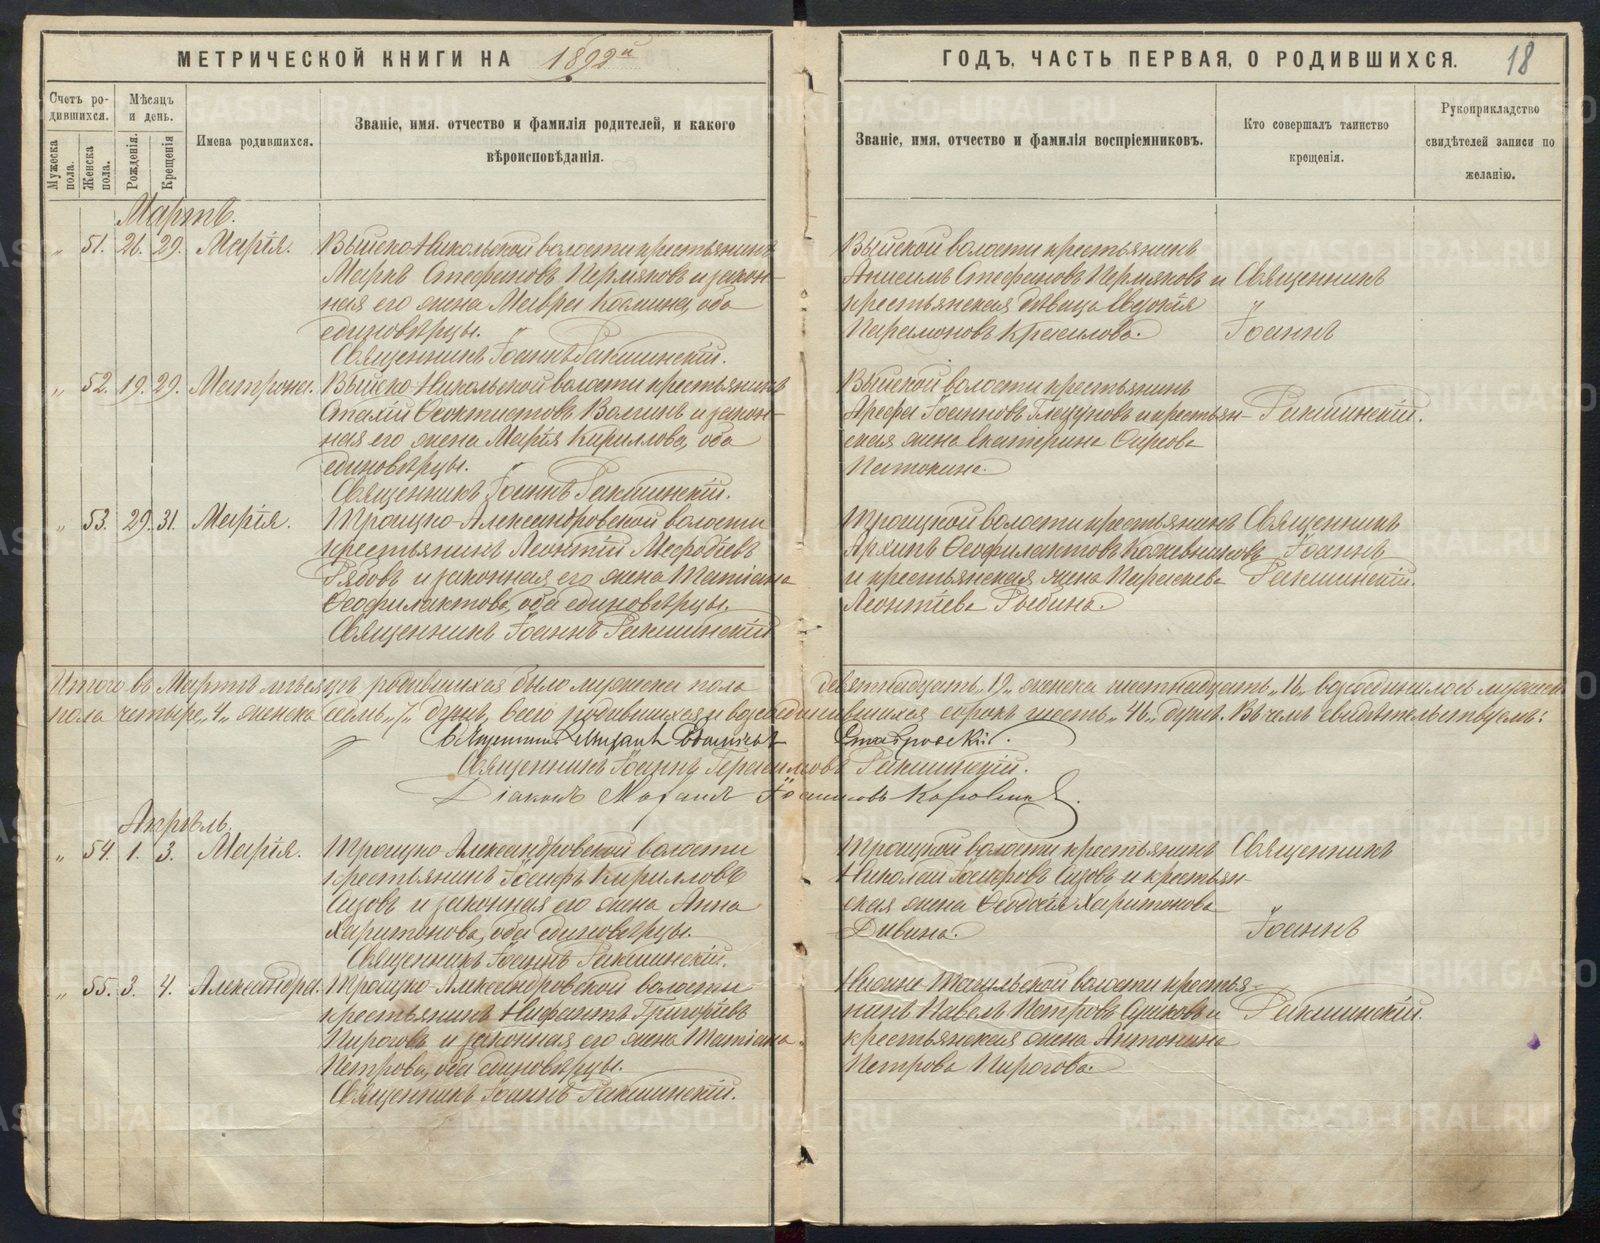 МЕТРИЧЕСКОЙ КНИГИ НА 1892й
ГОДЪ, ЧАСТЬ ПЕРВАЯ, О РОДИВШИХСЯ.
18
Счетъ ро-
дившихся.
Мужеска
пола.
Женска
пола.
Мѣсяцъ
и день.
Рожденія.
Крещенія
Имена родившихся.
Званіе, имя, отчество и фамилія родителей, и какого
вѣроисповѣданія.
Званіе, имя, отчество и фамилія воспріемниковъ.
Кто совершалъ таинство
крещенія.
Рукоприкладство
свидѣтелей записи по
желанію.
Мартъ.
„ 51. 26. 29. Марія.
Выйско-Никольской волости крестьянинъ
Маркъ Стефановъ Пермяковъ и закон-
ная его жена Мавра Космина, оба
единовѣрцы.
Священникъ Іоаннъ Ракшинскій.
Выйской волости крестьянинъ
Анисимъ Стефановъ Пермяковъ и
крестьянская дѣвица Евдокія
Парамонова Красилова.
Священникъ
Іоаннъ
Ракшинскій.
„ 52. 19. 29. Матрона.
Выйско-Никольской волости крестьянинъ
Стахій Ѳеоктистовъ Волгинъ и закон-
ная его жена Марія Кириллова, оба
единовѣрцы.
Священникъ Іоаннъ Ракшинскій.
Выйской волости крестьянинъ
Арефа Іоанновъ Глазуновъ и крестьян-
ская жена Екатерина
„ 53. 29. 31. Марія.
Троицко-Александровской волости
крестьянинъ Леонтій Меѳодіевъ
Рябовъ и законная его жена Татіана
Ѳеофилактова, оба единовѣрцы.
Священникъ Іоаннъ Ракшинскій
Троицкой волости крестьянинъ
Архипъ Ѳеофилактовъ Кожевниковъ
и крестьянская жена Параскева
Леонтіева Рыбина.
Священникъ
Іоаннъ
Ракшинскій.
Итого въ Мартѣ мѣсяцѣ родившихся было мужеска пола девятнадцать „19„ женска шестнадцать „16„ возсоединилось мужеск
пола четыре „4„ женска семь „7„ душъ, всего родившихся и возсоединившихся сорокъ шесть „46„ душъ. Въ чемъ свидѣтельствуемъ:
Ставровскій.
Священникъ Іоаннъ Герасимовъ Ракшинскій.
Діаконъ
Апрѣль.
„ 54. 1. 3. Марія.
Троицко-Александровской волости
крестьянинъ Іосифъ Кирилловъ
Сизовъ и законная его жена Анна
Харитонова, оба единовѣрцы.
Священникъ Іоаннъ Ракшинскій.
Троицкой волости крестьянинъ
Николай Іосифовъ Сизовъ и крестьян-
ская жена Ѳеодосія Харитонова
Дивина.
Священникъ
Іоаннъ
Ракшинскій.
„ 55. 3. 4. Александра.
Троицко-Александровской волости
крестьянинъ Нифантъ Григорьевъ
Пироговъ и законная его жена Татіана
Петрова, оба единовѣрцы.
Священникъ Іоаннъ Ракшинскій.
Нижне-Тагильской волости крестья-
нинъ Павелъ Петровъ и
крестьянская жена Антонина
Петрова Пирогова.
METRIKI.GASO-URAL.RU